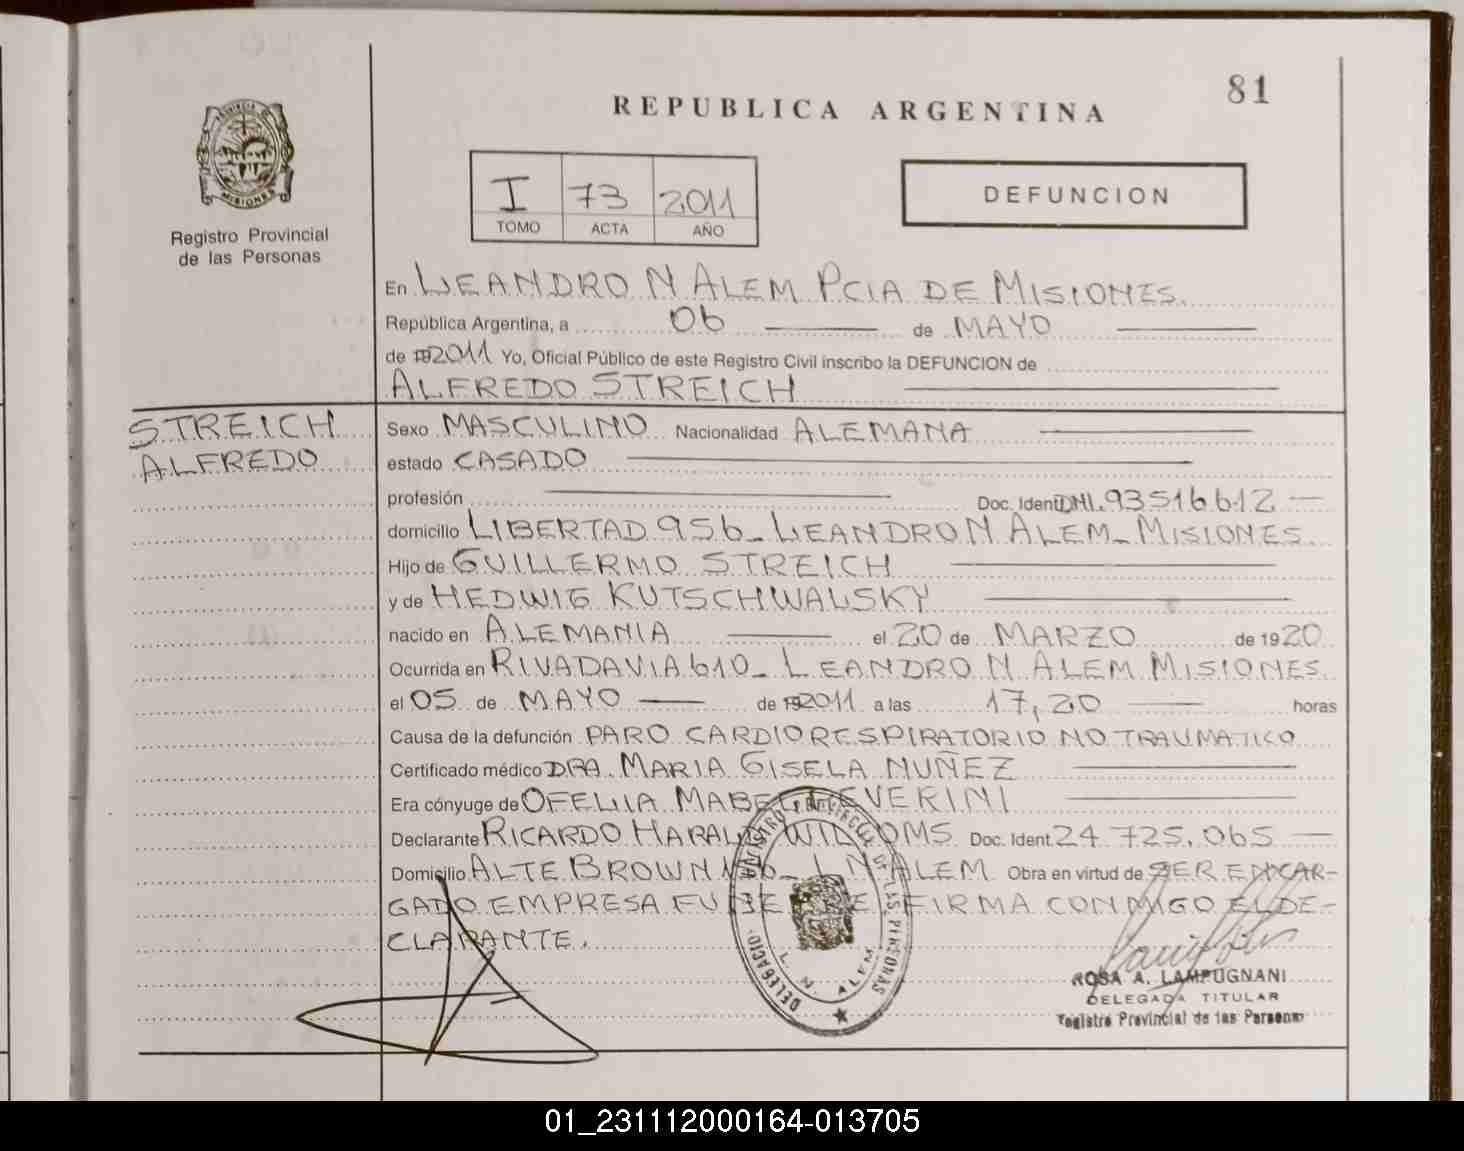 81
REPUBLICA ARGENTINA
PROVINCIA DE
MISIONES
Registro Provincial
de las Personas
I 73 2011
TOMO ACTA AÑO
DEFUNCION
En LEANDRO N ALEM PCIA DE MISIONES.
República Argentina, a 06 de MAYO
de 2011 Yo, Oficial Público de este Registro Civil inscribo la DEFUNCION de
ALFREDO STREICH
STREICH
ALFREDO
Sexo MASCULINO Nacionalidad ALEMANA
estado CASADO
profesión Doc. Ident. DNI. 93516612
domicilio LIBERTAD 956_ LEANDRO N ALEM_ MISIONES.
Hijo de GUILLERMO STREICH
y de HEDWIG KUTSCHWALSKY
nacido en ALEMANIA el 20 de MARZO de 1920
Ocurrida en RIVADAVIA 610_ LEANDRO N ALEM MISIONES.
el 05 de MAYO de 2011 a las 17,20 horas
Causa de la defunción PARO CARDIORESPIRATORIO NO TRAUMATICO
Certificado médico DRA. MARIA GISELA NUÑEZ
Era cónyuge de OFELIA MABEL
Declarante RICARDO HARALD Doc. Ident. 24 725.065
Domicilio ALTE BROWN N ALEM Obra en virtud de SER ENCAR-
GADO EMPRESA FIRMA CONMIGO EL DE-
CLARANTE.
DELEGACIO
DE LAS PERSONAS
L. N. ALEM
ROSA A. LAMPUGNANI
DELEGADA TITULAR
Registro Provincial de las Personas
01_231112000164-013705